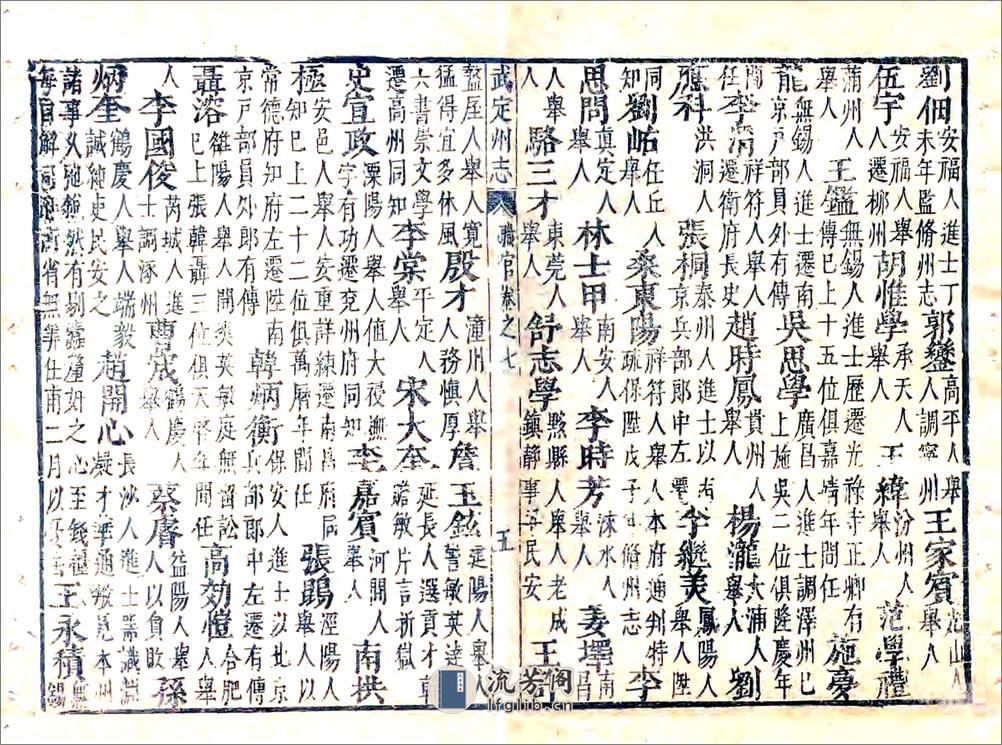 劉佃安福人進士丁未年監脩州志郭鑾高平人舉人調寧州王家賓光山人舉人
伍宇安福人舉人遷柳州胡惟學承天人舉人王緯汾州人舉人范學禮
蒲州人舉人王鑑無錫人進士歷遷光祿寺正卿有傳巳上十五位俱嘉靖年間任施慶
龍無錫人進士遷南京戶部員外有傳吳思學廣昌人進士調澤州巳上施吳二位俱隆慶年
間任李渭祥符人舉人遷衛府長史趙時鳳貴州人舉人楊瀧大浦人舉人劉
應科洪洞人張桐泰州人進士以南京兵部郎中左遷李繼美鳳陽人舉人陞
同知劉祐任丘人桑東陽祥符人舉人本府通判特疏保陞戊子脩州志李
思問真定人舉人林士甲南安人舉人李時芳涞水人舉人姜墿南昌
人舉人駱三才東莞人舉人舒志學黟縣人舉人老成鎮靜事孚民安王
武定州志 職官卷之七 五
盩厔人舉人寬猛得宜多休風殷才潼川人舉人務慎厚詹玉鉉建陽人舉人警敏英達
六書崇文學遷高州同知李棠平定人舉人宋大奎延長人選貢才章瞻敏片言折獄
史宣政溧陽人舉人值大祲撫字有功遷兗州府同知李嘉賓河間人舉人南拱
極安邑人舉人安重詳練遷南昌府同知巳上二十二位俱萬曆年間任張鶤涇陽人舉人以
常德府知府左遷陞南京戶部員外郎有傳韓炳衡保安人進士以北京兵部郎中左遷有傳
聶溶雒陽人舉人開爽英敏庭無留訟巳上張韓聶三位俱天啓年間任高効愷合肥人舉
人李國俊芮城人進士調涿州曹宬鶴慶人舉人蔡膺益陽人舉人以貪敗孫
炳奎鶴慶人舉人端毅誠純吏民安之趙開心長沙人進士器識淵凝才學通敏見本州
諸事久弛毅然有剔蠹釐奸之心至錢糧每自解省無算任甫二月以王永積無錫
流芳阁
lfglib.cn